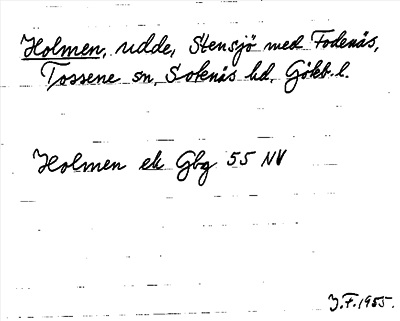 Holmen, udde, Stensjö med Fodenäs,
Tossene sn, Sotenäs hd, Götkb. l.
Holmen ek Gbg 55 NV
J.F. 1955.